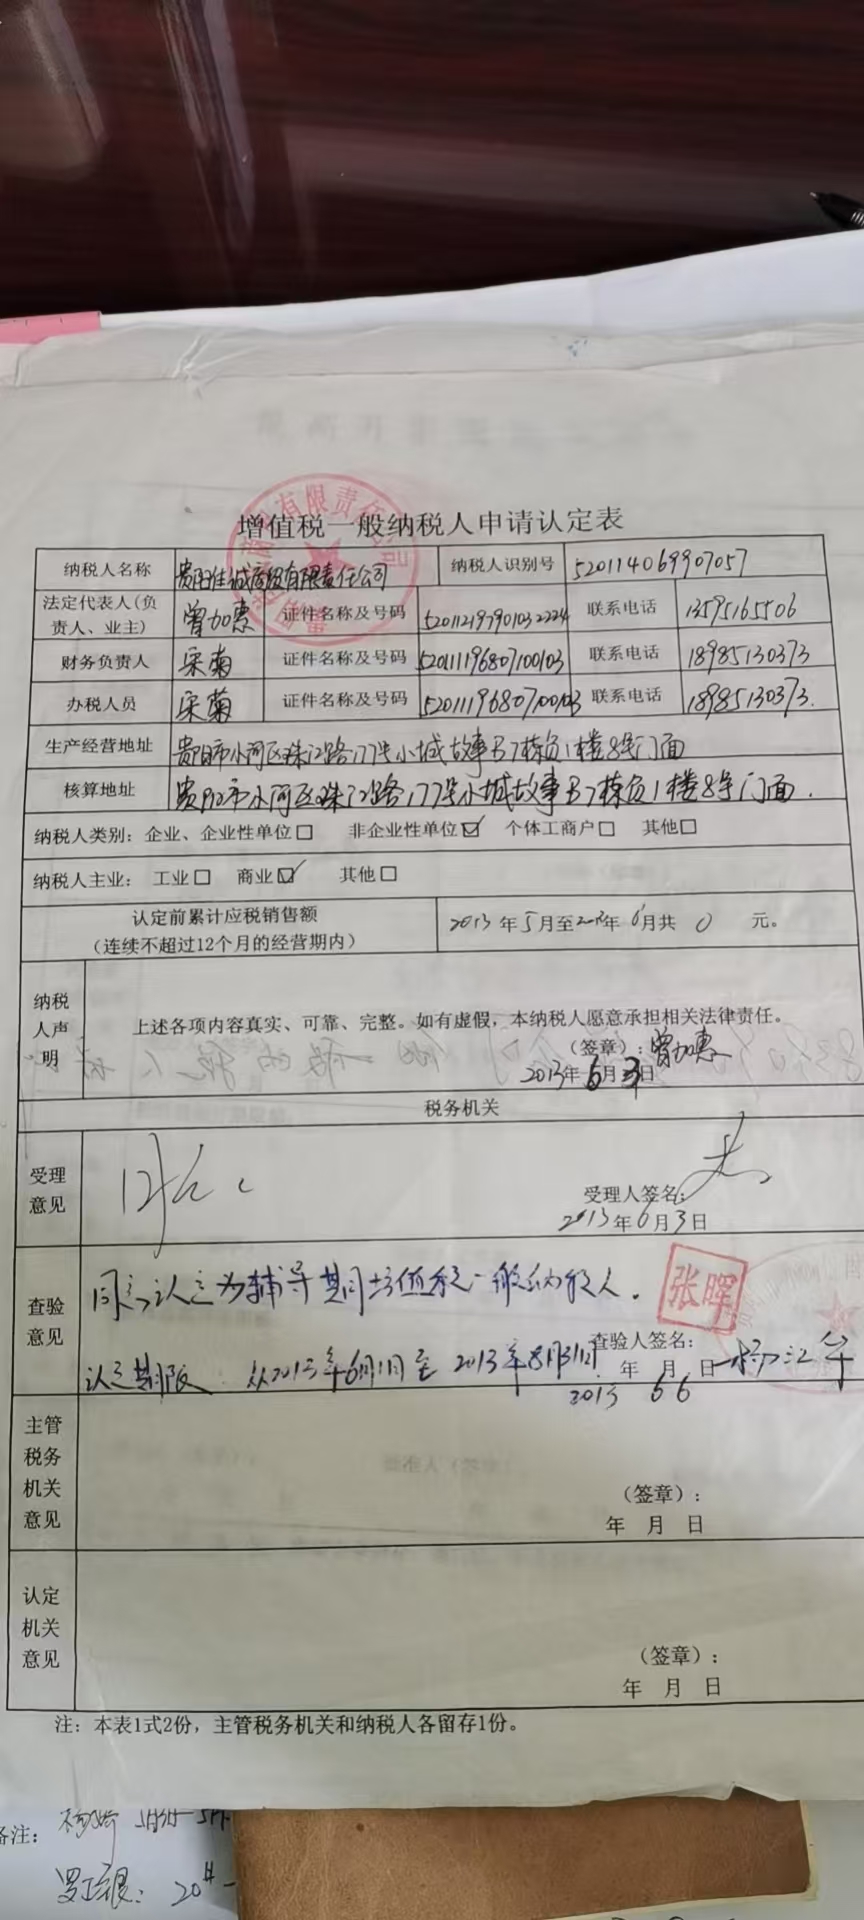 增值税一般纳税人申请认定表
纳税人名称 贵阳佳诚商贸有限责任公司 纳税人识别号 520114069907057
法定代表人(负责人、业主) 曾加惠 证件名称及号码 520112197901032224 联系电话 13595165506
财务负责人 宋菊 证件名称及号码 520111196807100103 联系电话 18985130373
办税人员 宋菊 证件名称及号码 520111196807100103 联系电话 18985130373.
生产经营地址 贵阳市小河区珠江路177号小城故事B7栋负1楼8号门面
核算地址 贵阳市小河区珠江路177号小城故事B7栋负1楼8号门面.
纳税人类别：企业、企业性单位□ 非企业性单位☑ 个体工商户□ 其他□
纳税人主业：工业□ 商业☑ 其他□
认定前累计应税销售额
（连续不超过12个月的经营期内） 2013年5月至2013年6月共 0 元。
纳税人声明 上述各项内容真实、可靠、完整。如有虚假，本纳税人愿意承担相关法律责任。
（签章）：曾加惠
2013年6月3日
税务机关
受理意见
受理人签名：
2013年6月3日
查验意见 同意认定为辅导期增值税一般纳税人.
张晖
查验人签名：
认定期限 从2013年6月1日至2013年8月31日 年 月 日
2013 6 6
主管税务机关意见
（签章）：
年 月 日
认定机关意见
（签章）：
年 月 日
注：本表1式2份，主管税务机关和纳税人各留存1份。
备注：